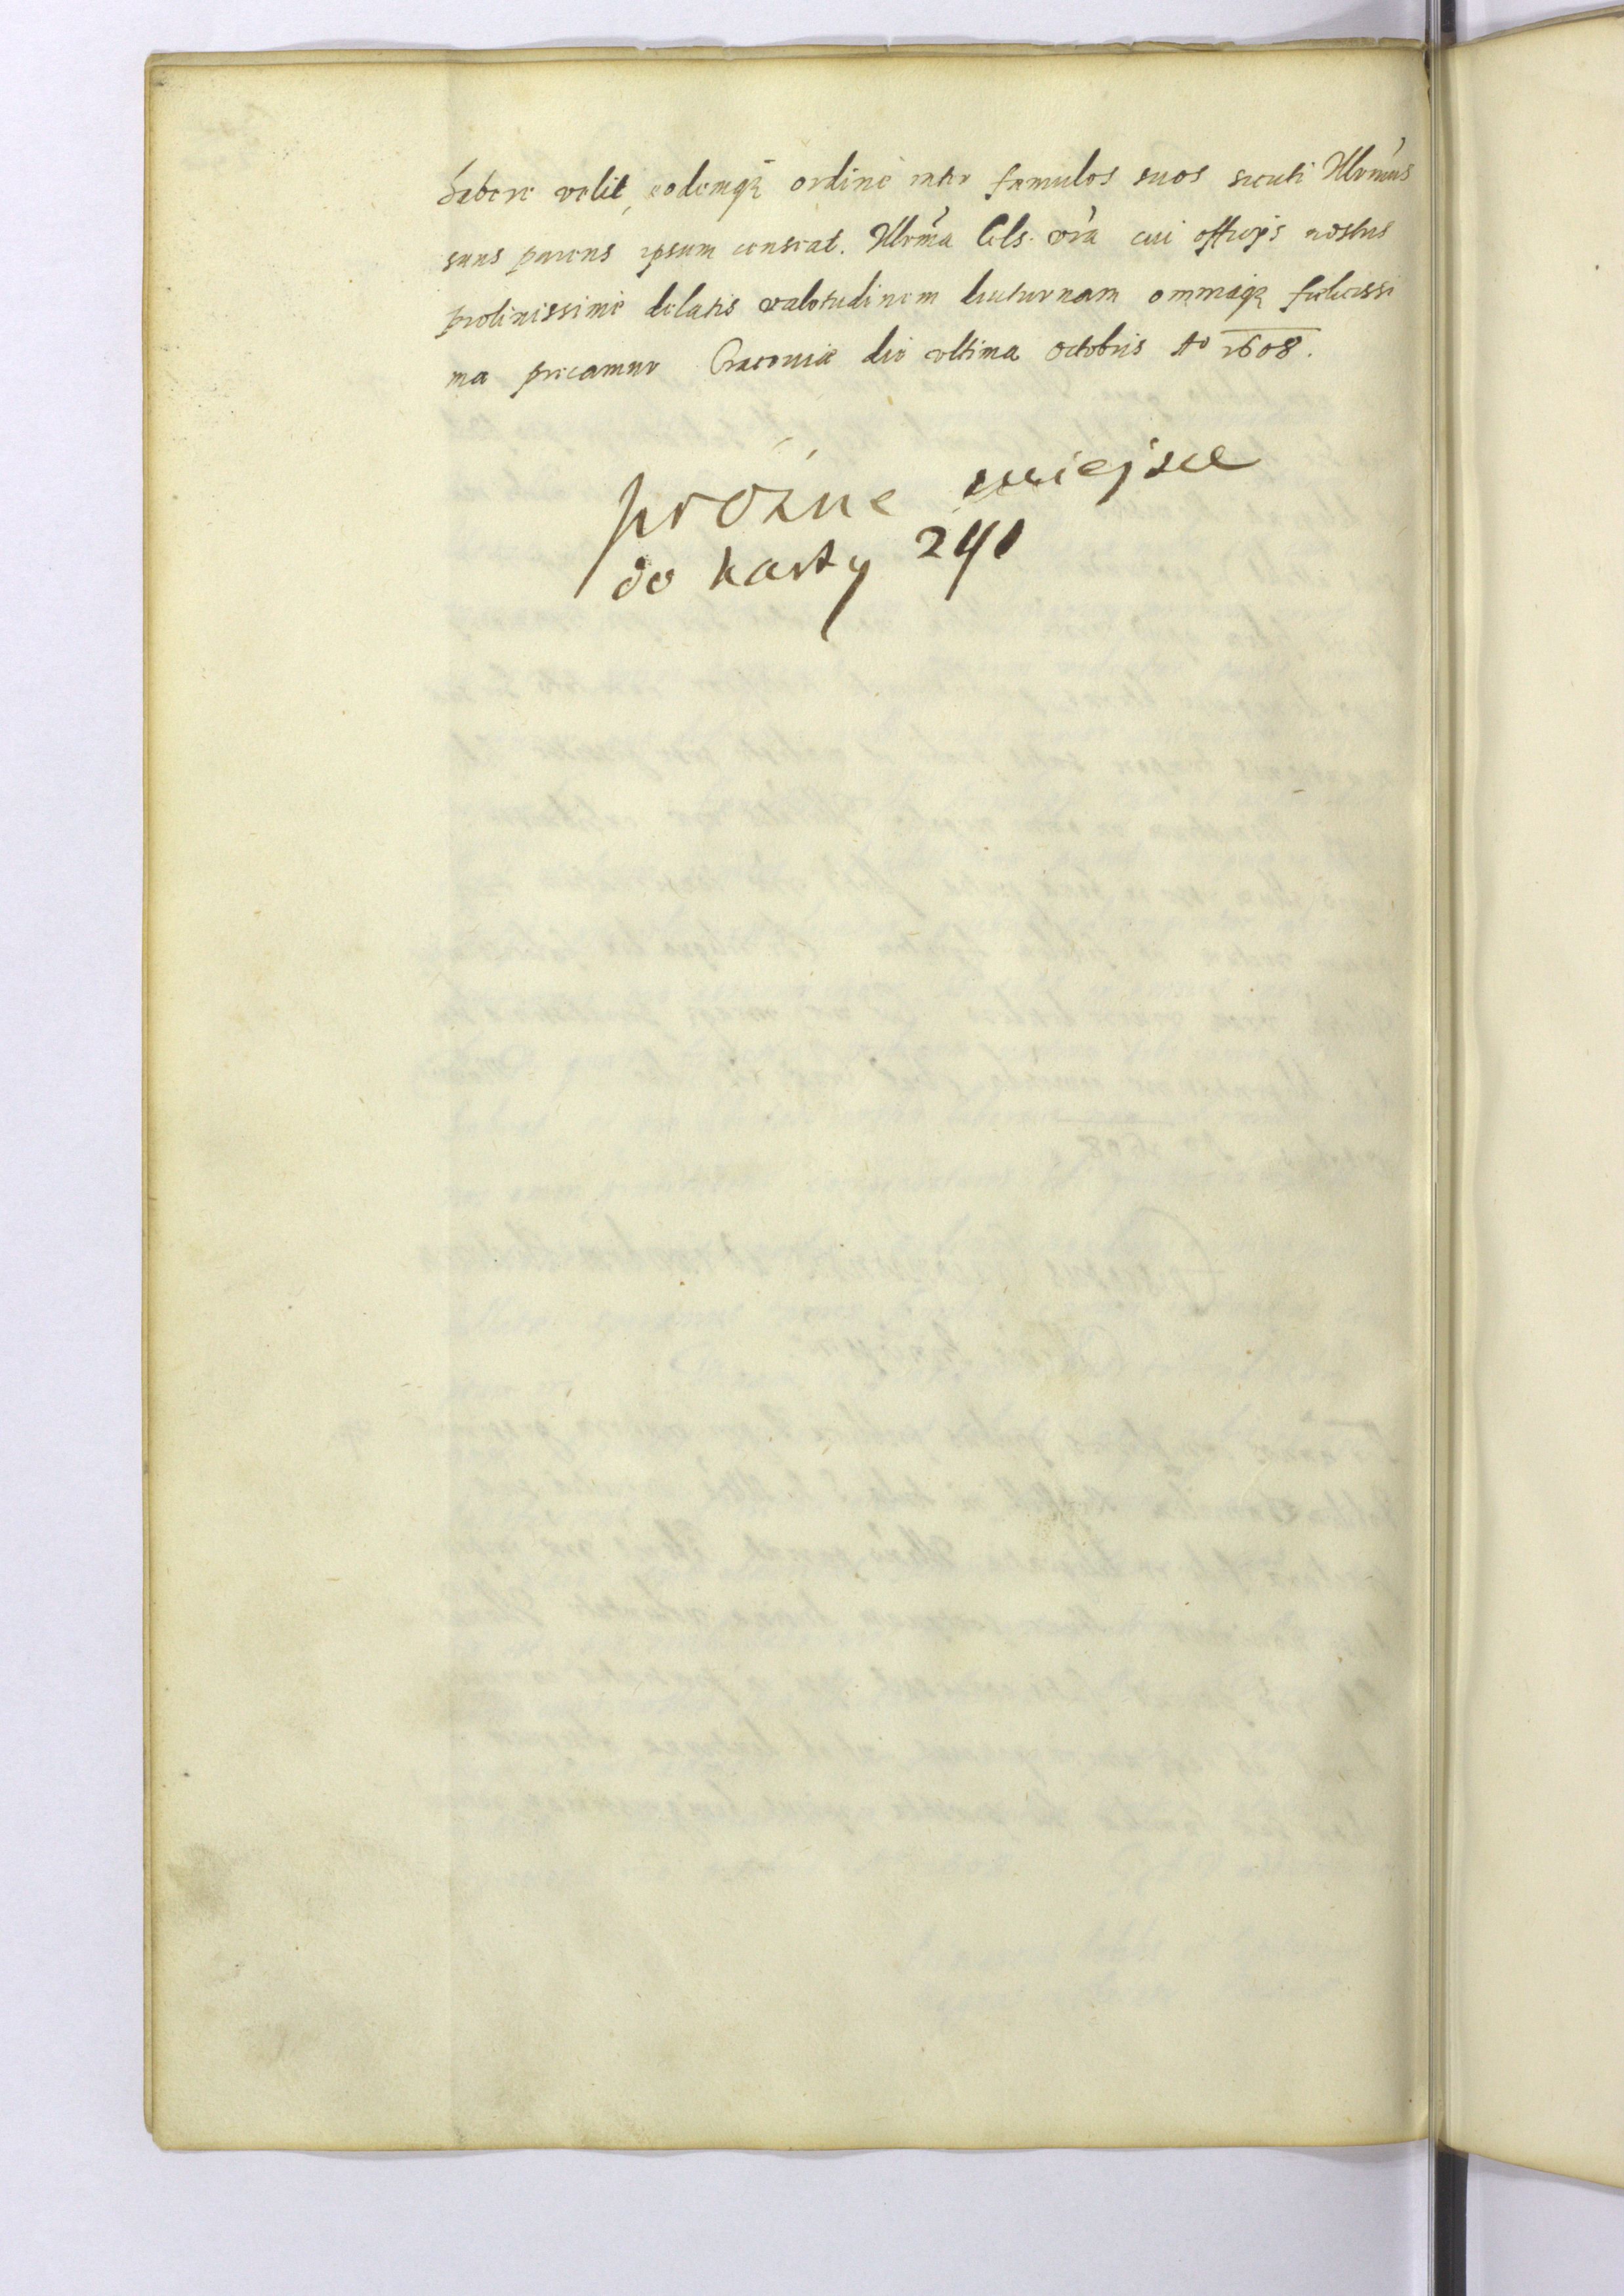 habere velit, eodemq; ordine inter famulos suos sicuti Illrmus
suus parens ipsum censeat. Illrma Cels. vra cui officijs nostris
prolixissime delatis valetudinem diuturnam omniaq; felicissi
ma precamur Cracouiæ die vltima octobris Ao 1608.
prózne miejsce
do karty 241